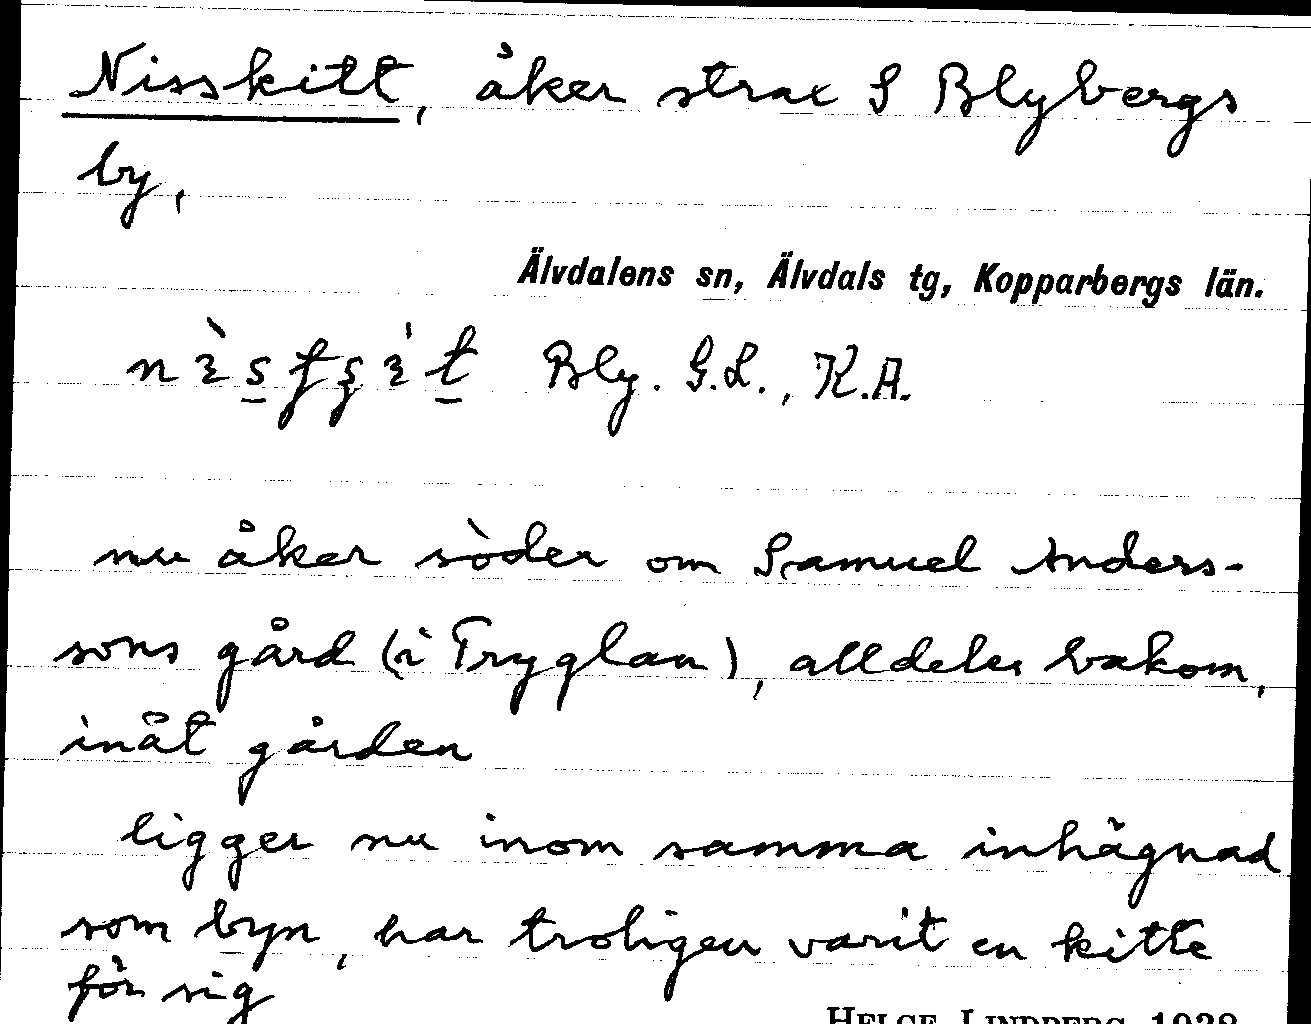 Nisskitt, åker strax S Blybergs
by,
Älvdalens sn, Älvdals tg, Kopparbergs län.
Bly. G.L., K.A.
nu åker söder om Samuel Anders-
sons gård (i Tryglan), alldeles bakom,
inåt gården
ligger nu inom samma inhägnad
som byn, har troligen varit en kitte
för sig
HELGE LINDBERG 1938